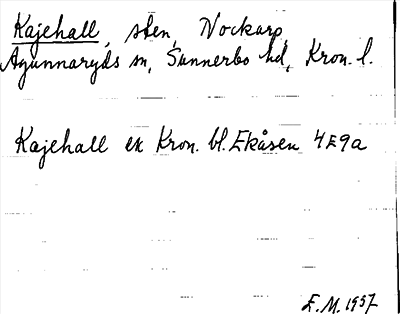 Kajehall, sten, Nockarp,
Agunnaryds sn, Sunnerbo hd, Kron. l.
Kajehall ek Kron. bl. Ekåsen 4E9a
E.M. 1957